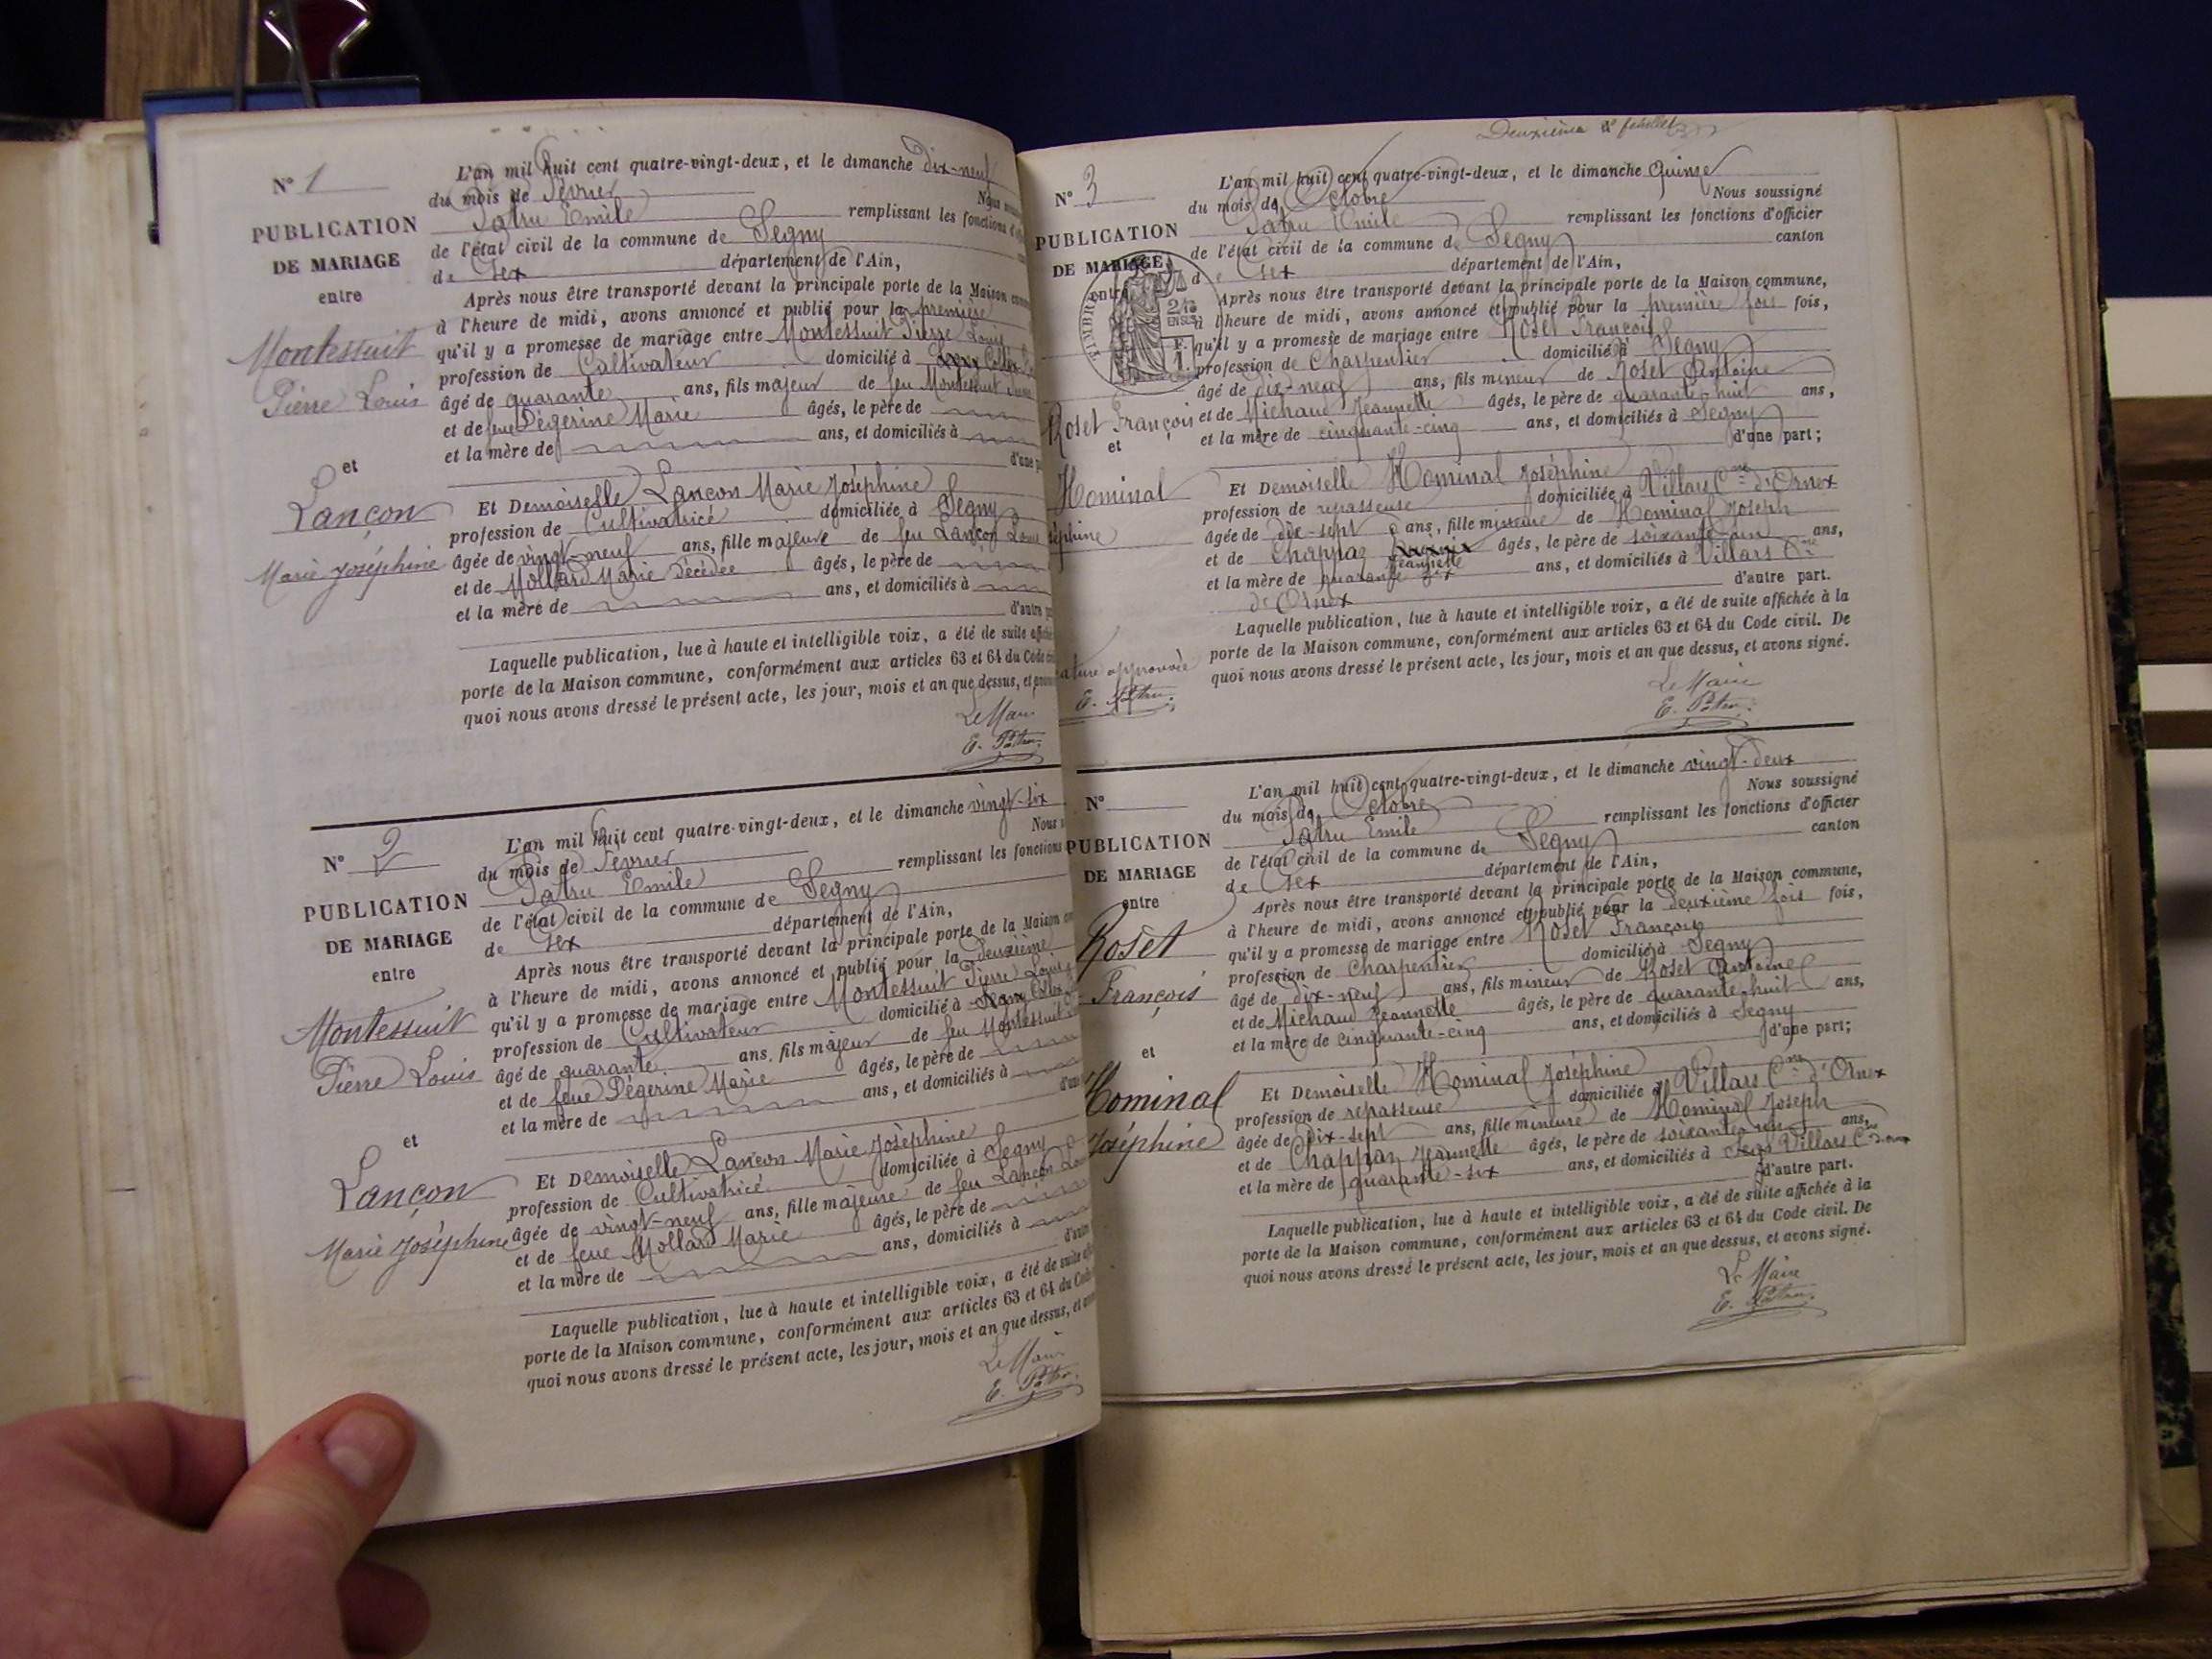 N° 1
PUBLICATION
DE MARIAGE
entre
Montessuit
Pierre Louis
et
Lançon
Marie Joséphine
L'an mil huit cent quatre-vingt-deux, et le dimanche dix-neuf
du mois de Février
Patru Emile remplissant les fonctions
de l'état civil de la commune de Segny
de Gex département de l'Ain,
Après nous être transporté devant la principale porte de la Maison
à l'heure de midi, avons annoncé et publié pour la première
qu'il y a promesse de mariage entre Montessuit Pierre Louis
profession de Cultivateur domicilié à
âgé de quarante ans, fils majeur de feu Montessuit
et de feue Pégerine Marie âgés, le père de
et la mère de ans, et domiciliés à
Et Demoiselle Lançon Marie Joséphine
profession de Cultivatrice domiciliée à Segny
âgée de vingt-neuf ans, fille majeure de feu Lançon
et de Mollard Marie décédée âgés, le père de
et la mère de ans, et domiciliés à
d'autre
Laquelle publication, lue à haute et intelligible voix, a été de suite
porte de la Maison commune, conformément aux articles 63 et 64 du Code
quoi nous avons dressé le présent acte, les jour, mois et an que dessus, et
Le Maire
E. Patru
N° 2
PUBLICATION
DE MARIAGE
entre
Montessuit
Pierre Louis
et
Lançon
Marie Joséphine
L'an mil huit cent quatre-vingt-deux, et le dimanche vingt-six
du mois de Février Nous
Patru Emile remplissant les fonctions
de l'état civil de la commune de Segny
de Gex département de l'Ain,
Après nous être transporté devant la principale porte de la Maison
à l'heure de midi, avons annoncé et publié pour la deuxième
qu'il y a promesse de mariage entre Montessuit Pierre Louis
profession de Cultivateur domicilié à
âgé de quarante ans, fils majeur de feu Montessuit
et de feue Pégerine Marie âgés, le père de
et la mère de ans, et domiciliés à
Et Demoiselle Lançon Marie Joséphine
profession de Cultivatrice domiciliée à Segny
âgée de vingt-neuf ans, fille majeure de feu Lançon
et de feue Mollard Marie âgés, le père de
et la mère de ans, domiciliés à
Laquelle publication, lue à haute et intelligible voix, a été de suite
porte de la Maison commune, conformément aux articles 63 et 64 du Code
quoi nous avons dressé le présent acte, les jour, mois et an que dessus, et
Le Maire
E. Patru
Deuxième feuillet
N° 3
PUBLICATION
DE MARIAGE
entre
TIMBRE
Roset François
et
Hominal
approuvée
E. Patru
L'an mil huit cent quatre-vingt-deux, et le dimanche Quinze
du mois de Octobre Nous soussigné
Patru Emile remplissant les fonctions d'officier
de l'état civil de la commune de Segny canton
de Gex département de l'Ain,
Après nous être transporté devant la principale porte de la Maison commune,
à l'heure de midi, avons annoncé et publié pour la première fois fois,
qu'il y a promesse de mariage entre Roset François
profession de Charpentier domicilié à Segny
âgé de dix-neuf ans, fils mineur de Roset Antoine
et de Michaud Jeannette âgés, le père de quarante huit ans,
et la mère de cinquante-cinq ans, et domiciliés à Segny
d'une part;
Et Demoiselle Hominal Joséphine
profession de repasseuse domiciliée à Villars Cne d'Ornex
âgée de dix-sept ans, fille mineure de Hominal Joseph
et de Chappaz Jeannette âgés, le père de soixante-un ans,
et la mère de quarante six ans, et domiciliés à Villars Cne
d'Ornex d'autre part.
Laquelle publication, lue à haute et intelligible voix, a été de suite affichée à la
porte de la Maison commune, conformément aux articles 63 et 64 du Code civil. De
quoi nous avons dressé le présent acte, les jour, mois et an que dessus, et avons signé.
Le Maire
E. Patru
N°
PUBLICATION
DE MARIAGE
entre
Roset
François
et
Hominal
Joséphine
L'an mil huit cent quatre-vingt-deux, et le dimanche vingt-deux
du mois de Octobre Nous soussigné
Patru Emile remplissant les fonctions d'officier
de l'état civil de la commune de Segny canton
de Gex département de l'Ain,
Après nous être transporté devant la principale porte de la Maison commune,
à l'heure de midi, avons annoncé et publié pour la deuxième fois fois,
qu'il y a promesse de mariage entre Roset François
profession de Charpentier domicilié à Segny
âgé de dix-neuf ans, fils mineur de Roset Antoine
et de Michaud Jeannette âgés, le père de quarante-huit ans,
et la mère de cinquante-cinq ans, et domiciliés à Segny
d'une part;
Et Demoiselle Hominal Joséphine
profession de repasseuse domiciliée à Villars Cne d'Ornex
âgée de dix-sept ans, fille mineure de Hominal Joseph
et de Chappaz Jeannette âgés, le père de soixante-un ans,
et la mère de quarante-six ans, et domiciliés à Villars Cne
d'autre part.
Laquelle publication, lue à haute et intelligible voix, a été de suite affichée à la
porte de la Maison commune, conformément aux articles 63 et 64 du Code civil. De
quoi nous avons dressé le présent acte, les jour, mois et an que dessus, et avons signé.
Le Maire
E. Patru